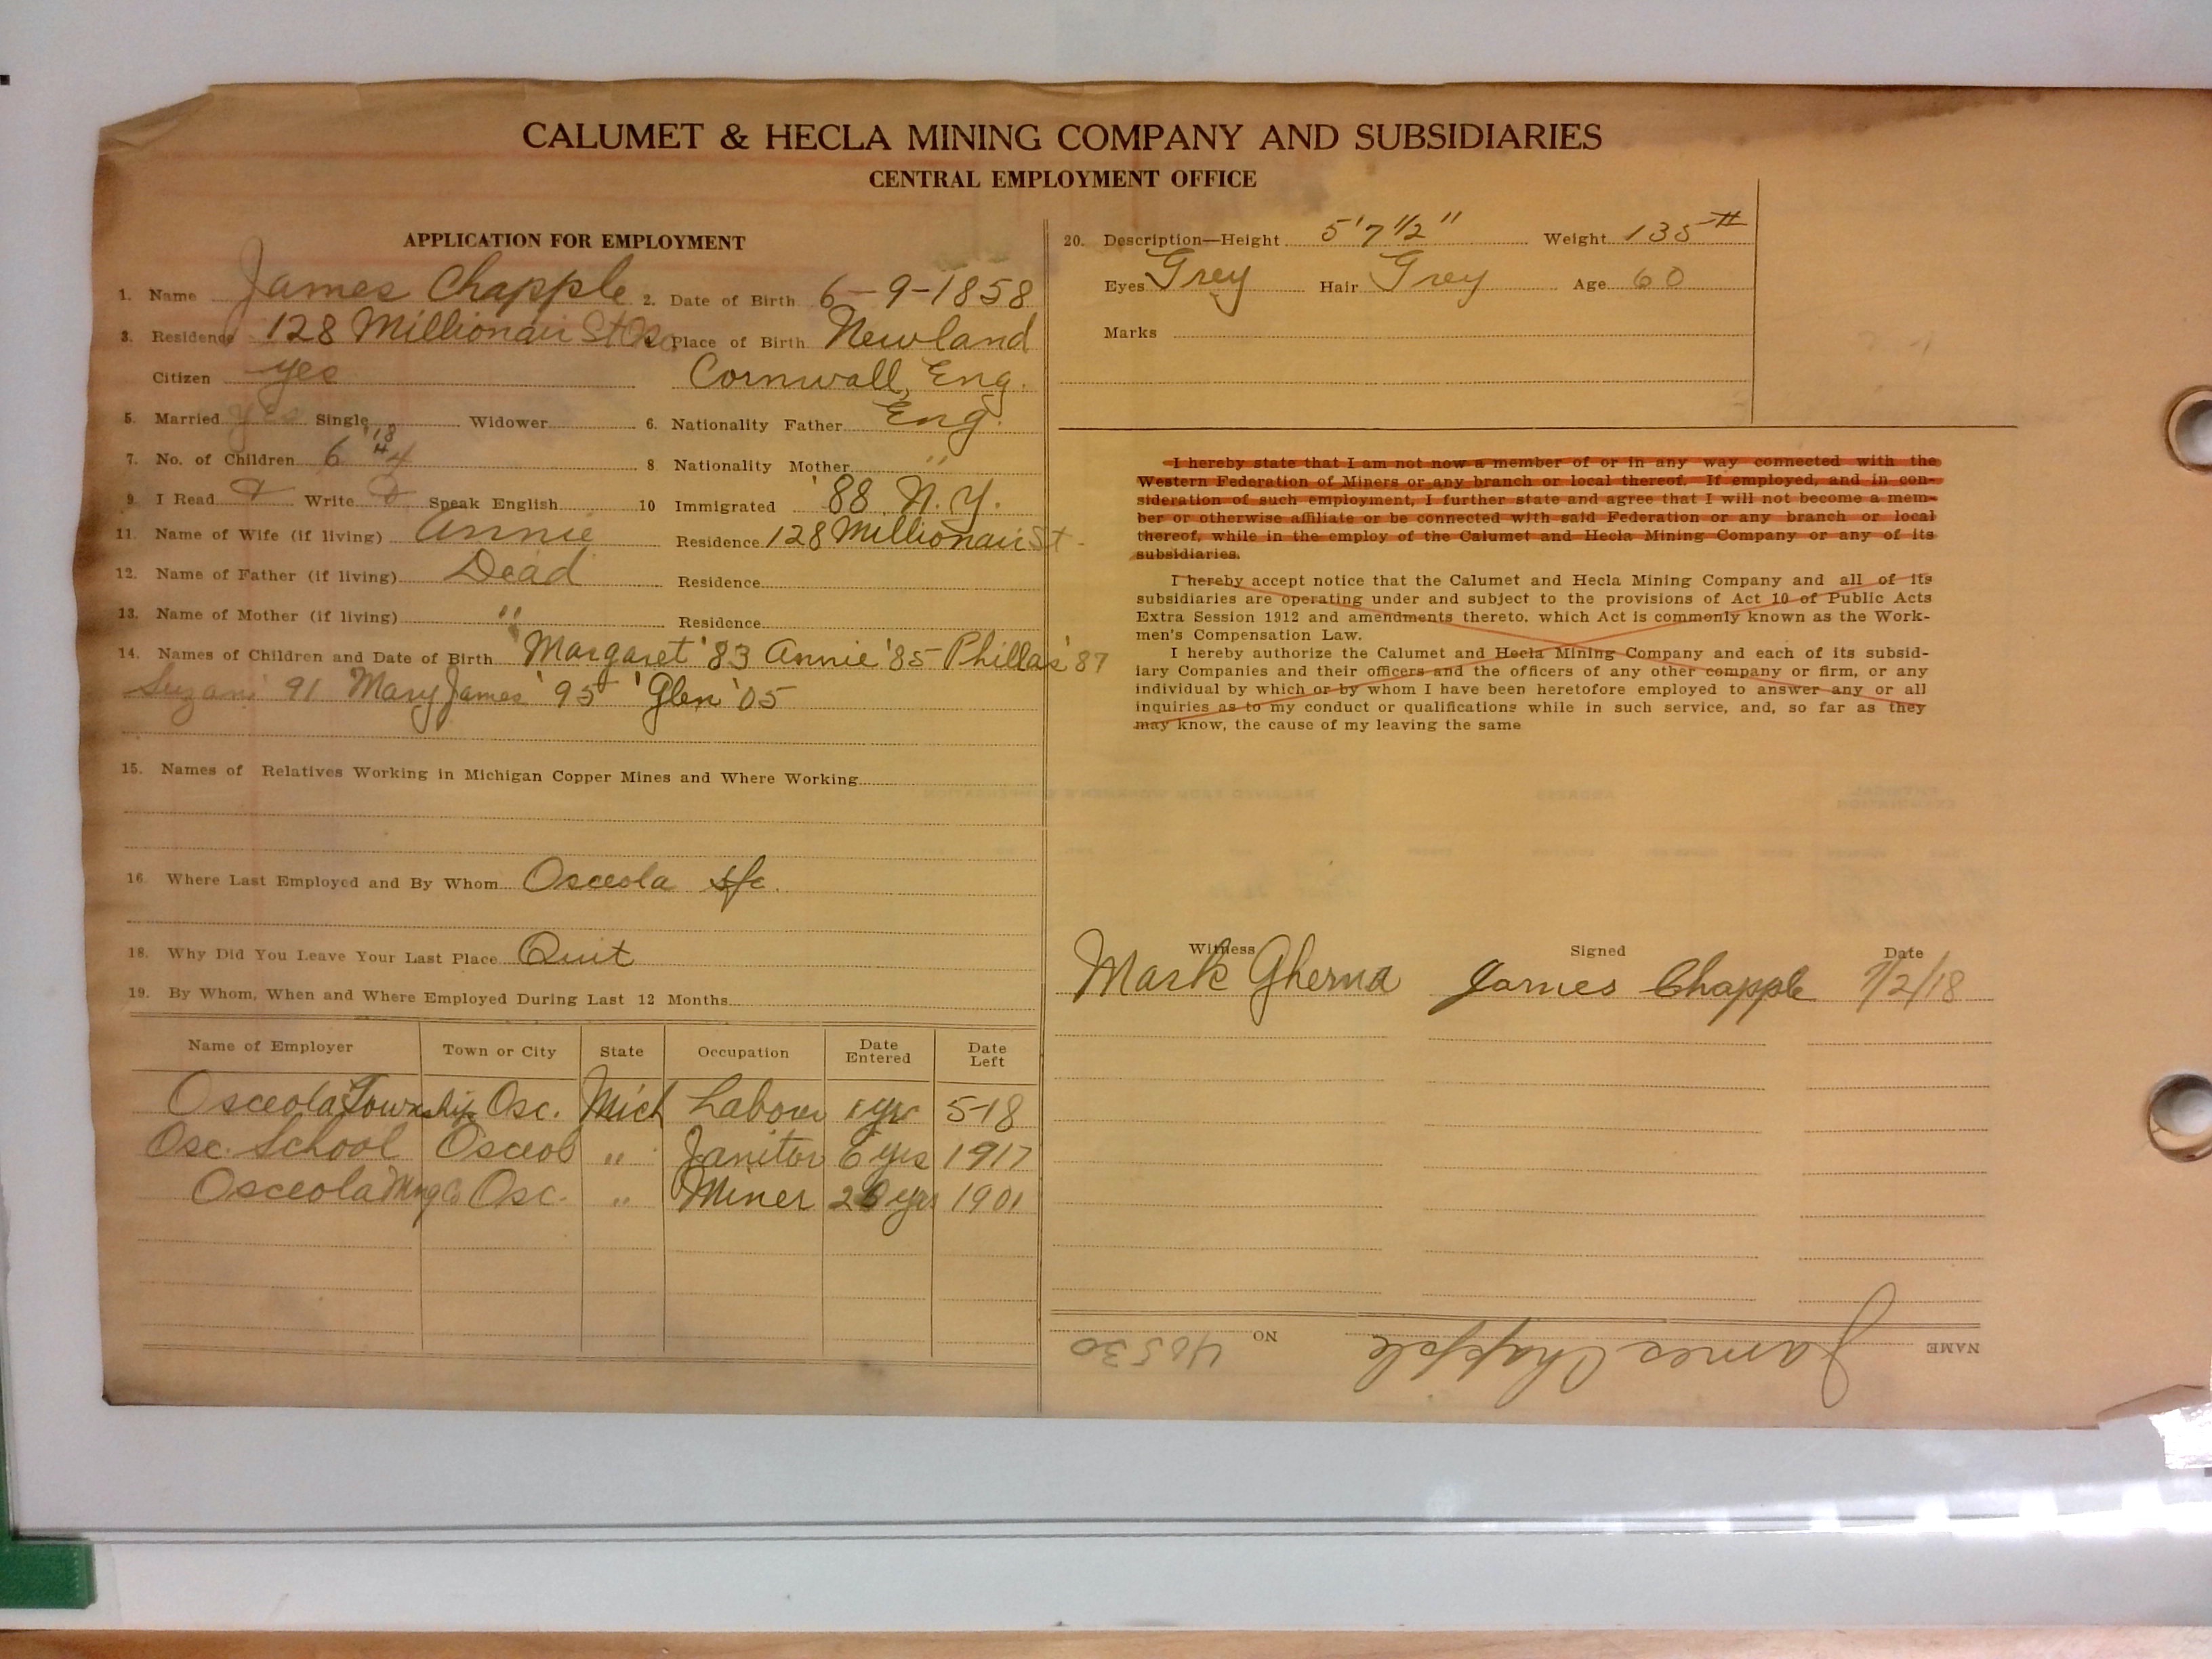 CALUMET & HECLA MINING COMPANY AND SUBSIDIARIES
CENTRAL EMPLOYMENT OFFICE
APPLICATION FOR EMPLOYMENT
1. Name James Chapple 2. Date of Birth 6-9-1858
3. Residence 128 Millionair St Place of Birth Newland
Citizen yes Cornwall, Eng.
5. Married yes Single Widower 6. Nationality Father Eng.
7. No. of Children 6 8 Nationality Mother "
9. I Read Write Speak English 10 Immigrated '88 N.Y.
11. Name of Wife (if living) Annie Residence 128 Millionair St.
12. Name of Father (if living) Dead Residence
13. Name of Mother (if living) " Residence
14. Names of Children and Date of Birth Margaret '83 Annie '85 Phillas '87
Suzan '91 Mary James '95 Glen '05
15. Names of Relatives Working in Michigan Copper Mines and Where Working
16. Where Last Employed and By Whom Osceola
18. Why Did You Leave Your Last Place Quit
19. By Whom, When and Where Employed During Last 12 Months
Name of Employer Town or City State Occupation Date Entered Date Left
Osceola Township Osc. Mich Labour 1 yr 5-18
Osc. School Osceola " Janitor 6 yrs 1917
Osceola Mng Co Osc. " Miner yrs 1901
20. Description—Height 5'7 1/2" Weight 135#
Eyes Grey Hair Grey Age 60
Marks
I hereby state that I am not now a member of or in any way connected with the
Western Federation of Miners or any branch or local thereof. If employed, and in con-
sideration of such employment, I further state and agree that I will not become a mem-
ber or otherwise affiliate or be connected with said Federation or any branch or local
thereof, while in the employ of the Calumet and Hecla Mining Company or any of its
subsidiaries.
I hereby accept notice that the Calumet and Hecla Mining Company and all of its
subsidiaries are operating under and subject to the provisions of Act 10 of Public Acts
Extra Session 1912 and amendments thereto, which Act is commonly known as the Work-
men's Compensation Law.
I hereby authorize the Calumet and Hecla Mining Company and each of its subsid-
iary Companies and their officers and the officers of any other company or firm, or any
individual by which or by whom I have been heretofore employed to answer any or all
inquiries as to my conduct or qualifications while in such service, and, so far as they
may know, the cause of my leaving the same
Witness Signed Date
Mark Gherna James Chapple 7/2/18
NAME James Chapple NO 46530